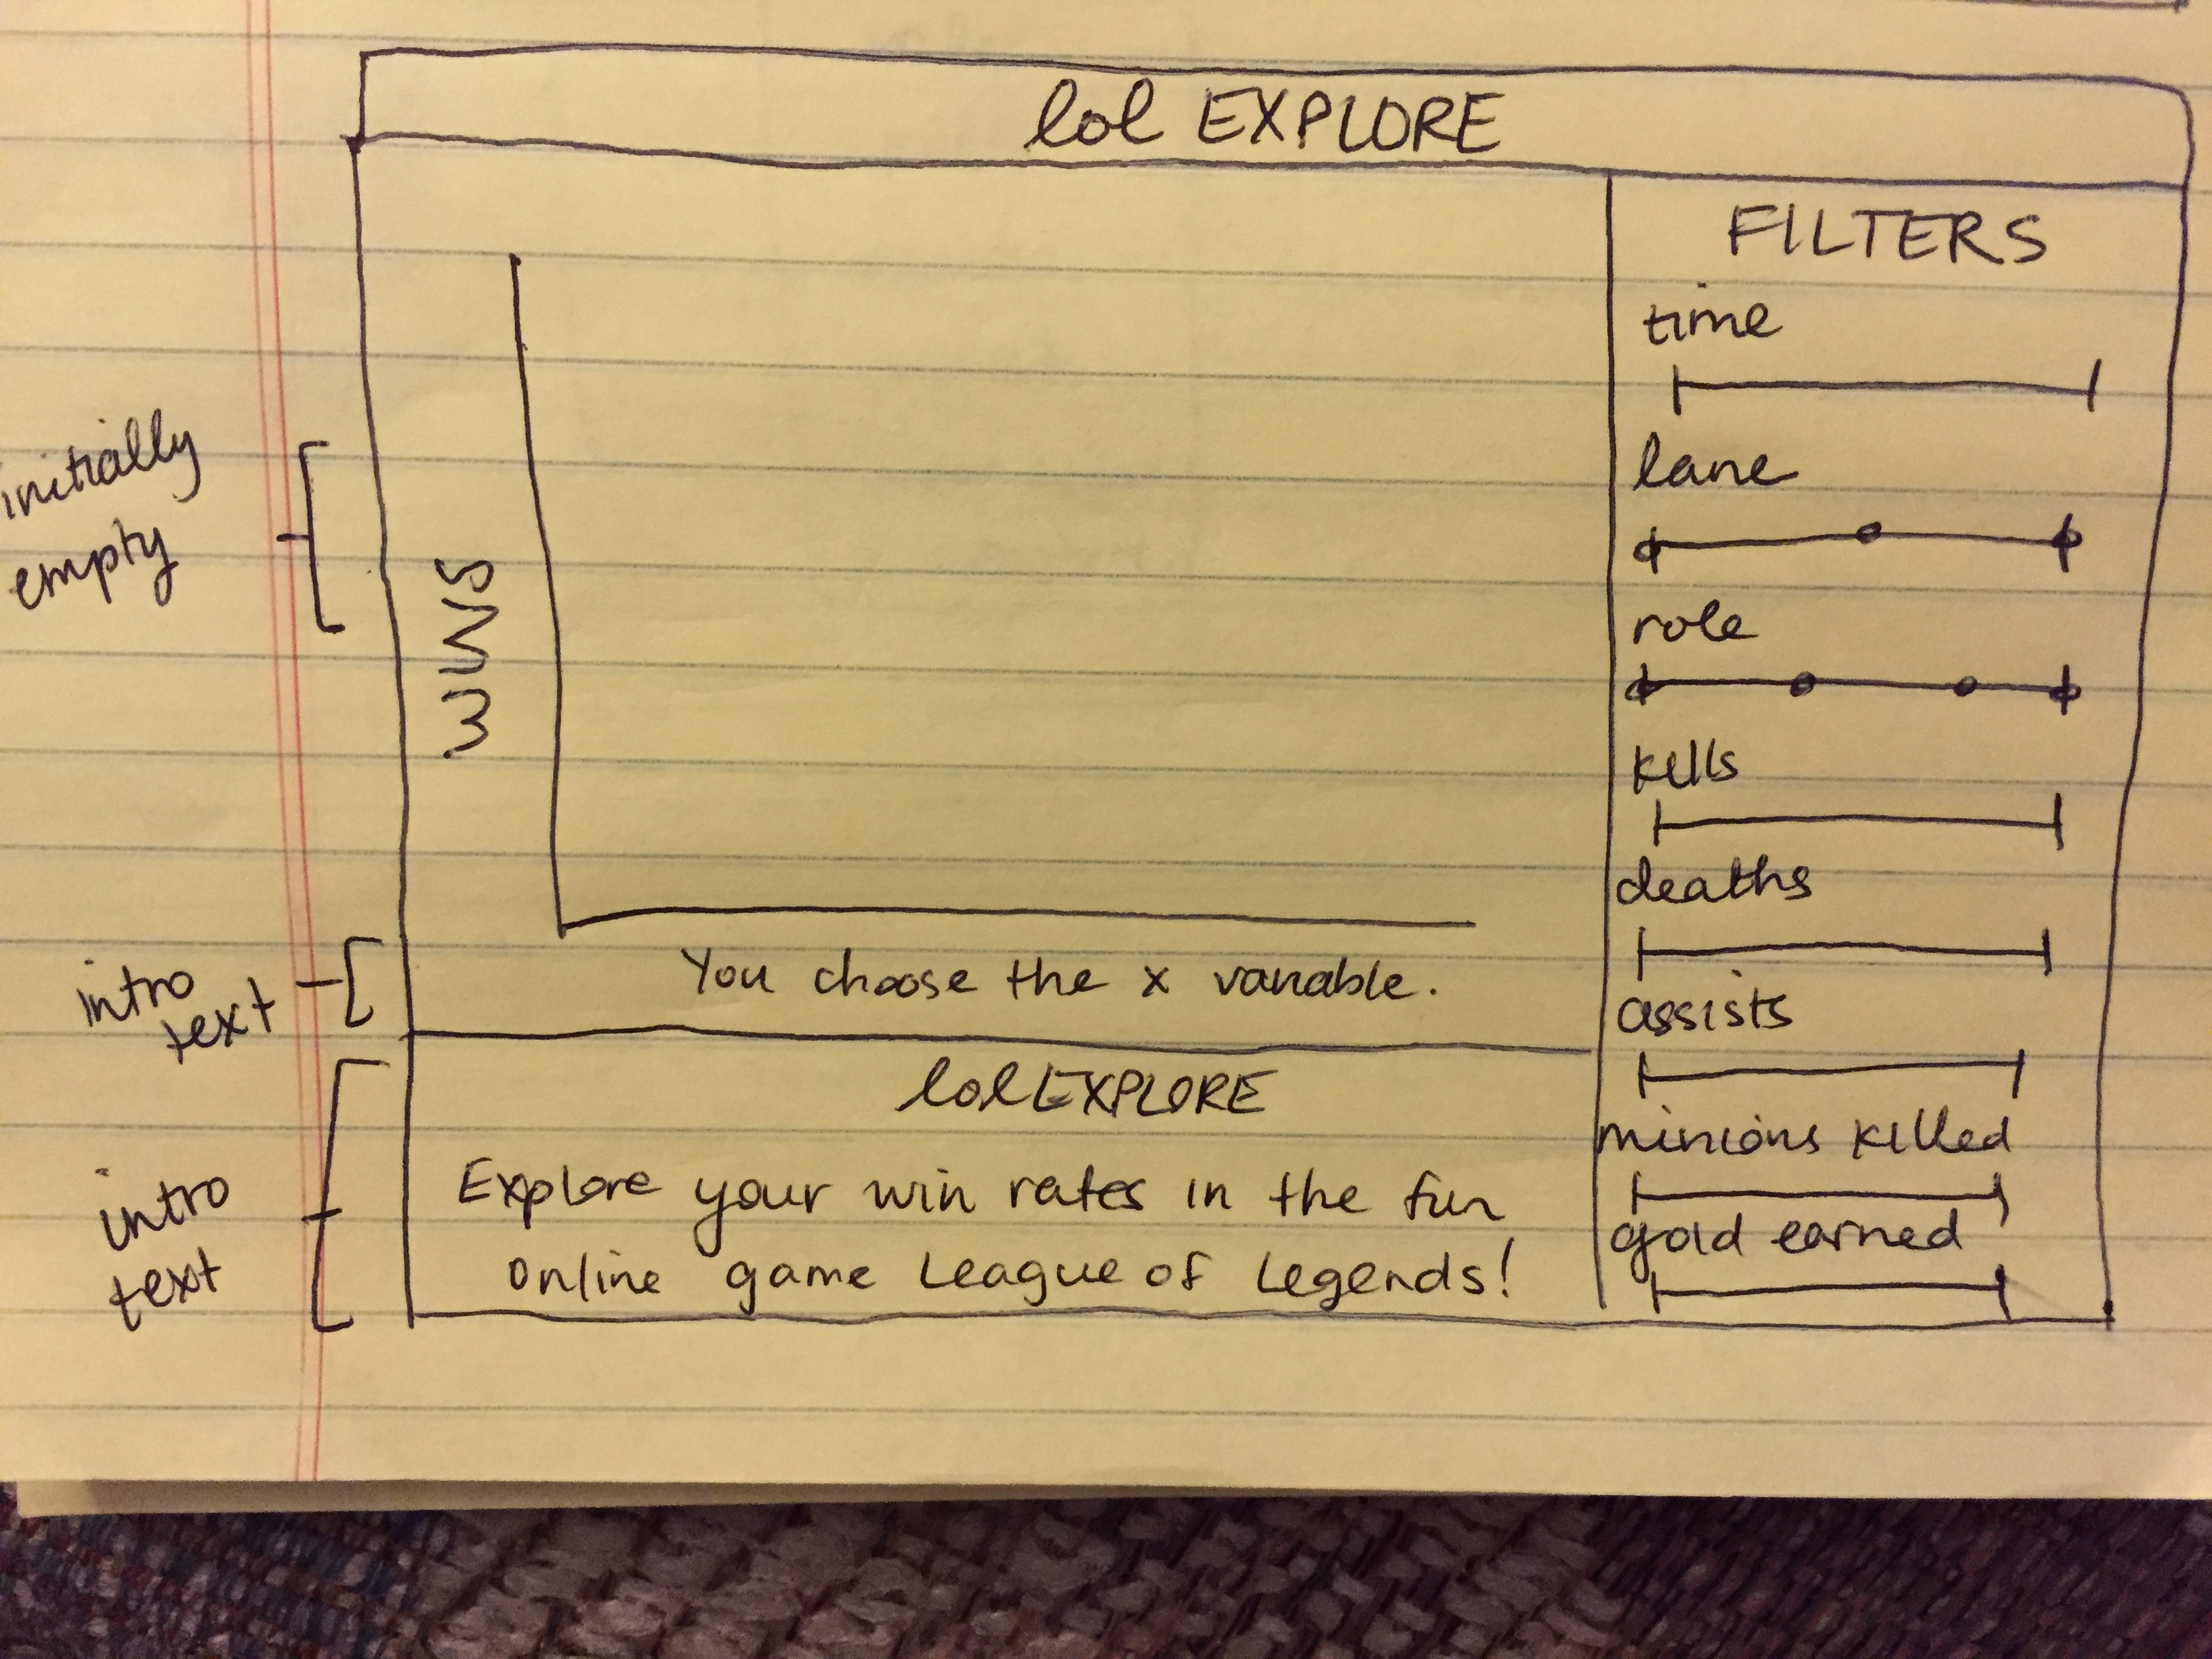 lol EXPLORE
initially
empty
WINS
You choose the x variable.
intro
text
lol EXPLORE
Explore your win rates in the fun
online game League of Legends!
intro
text
FILTERS
time
lane
role
kills
deaths
assists
minions killed
gold earned